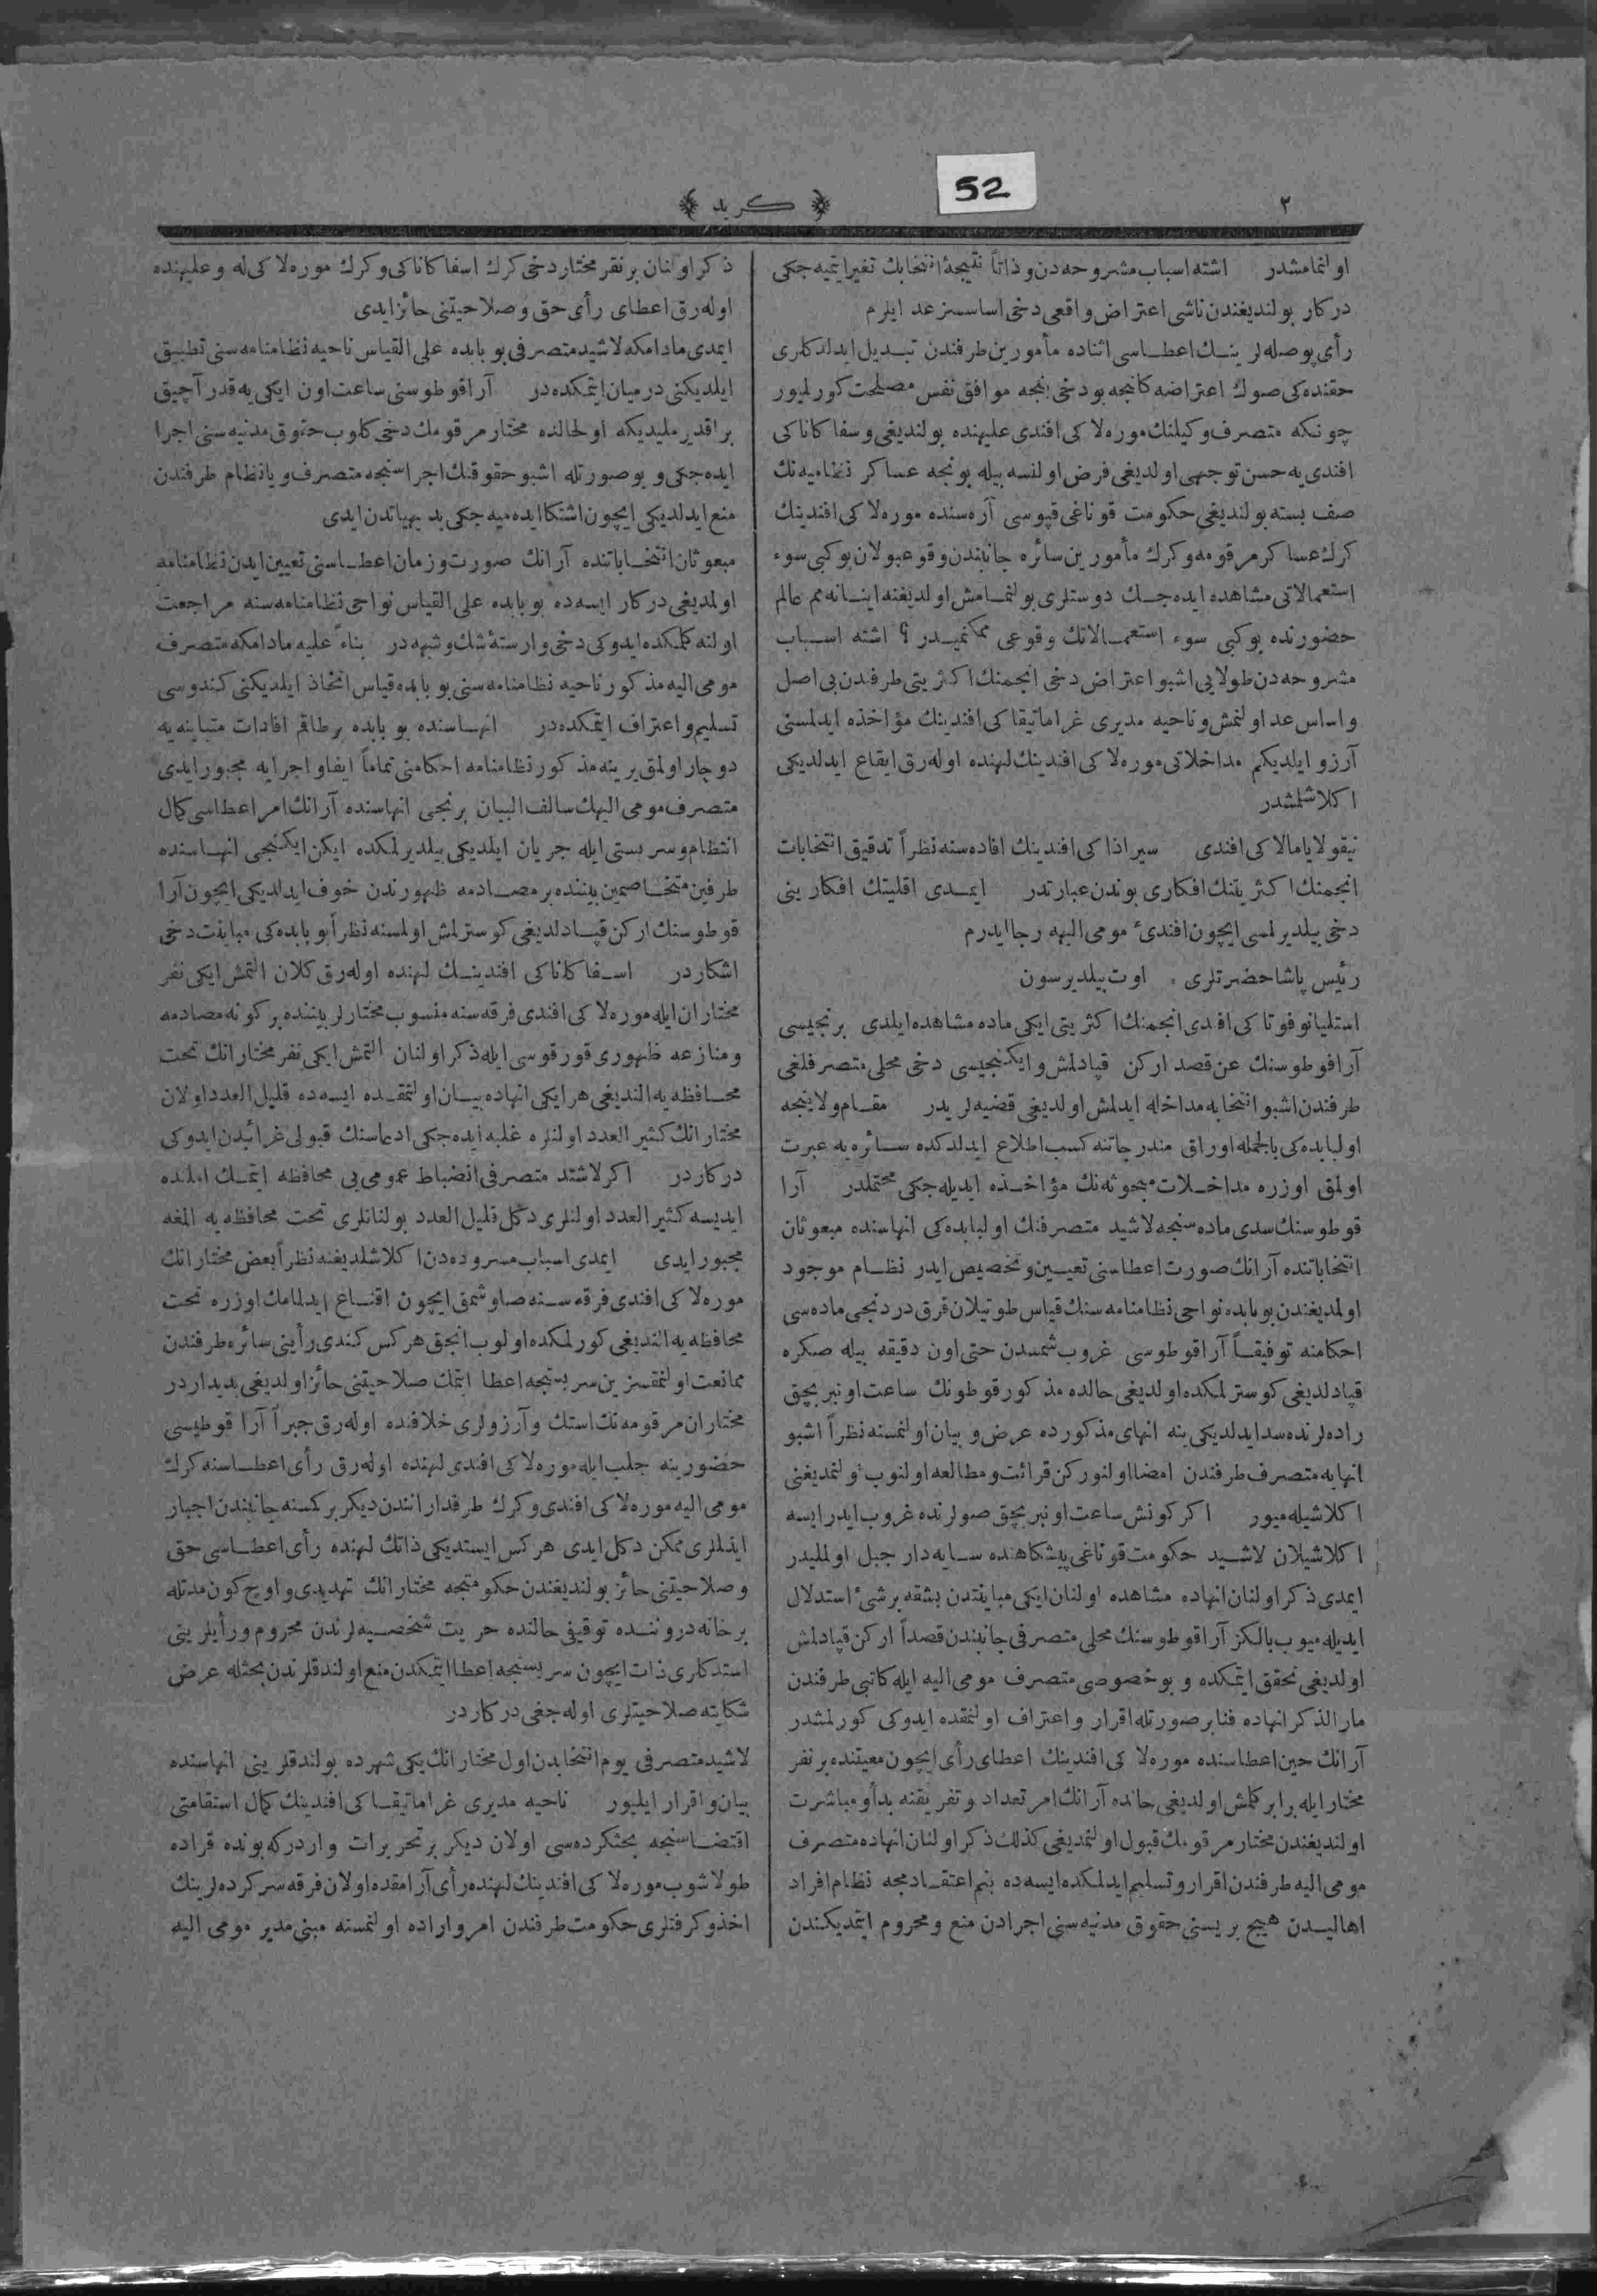 52
٢
كريد
اولنمامشدر اشته اسباب مشروحه‌دن و ذاتاً نتيجهٔ انتخابك تغير ايتميه‌جكى
دركار بولنديغندن ناشى اعتراض واقعى دخى اساسسز عد ايلرم
رأى پوصله‌لرينــك اعطــاسى اثناده مأمورين طرفندن تبــديل ايدلدكلرى
حقنده‌كى صوك اعتراضه كلنجه بو دخى بنجه موافق نفس مصلحت كورلميور
چونكه متصرف وكيلنك موره‌لاكى افندى عليهنده بولنديغى و سفاكاناكى
افندى‌يه حسن توجهى اولديغى فرض اولنسه بيله بونجه عساكر نظاميه‌نك
صف بسته بولنديغى حكومت قوناغى قپوسى آره‌سنده موره‌لاكى افندينك
كرك عساكر مرقومه و كرك مأمورين سائره جانبندن وقوعبولان بوكبى سوء
استعمالاتى مشاهده ايده‌جــك دوستلرى بولنمــامش اولديغنه اينــانه‌مم عالم
حضورنده بوكبى سوء استعمــالاتك وقوعى ممكنميــدر ؟ اشته اســباب
مشروحه‌دن طولايى اشبو اعتراض دخى انجمنك اكثريتى طرفندن بى اصل
و اساس عد اولنمش و ناحيه مديرى غراماتيقاكى افندينك مؤاخذه ايدلمسنى
آرزو ايلديكم مداخلاتى موره‌لاكى افندينك لهنده اوله‌رق ايقاع ايدلديكى
اكلاشلمشدر
نيقولا يامالاكى افندى سيراذاكى افندينك افاده‌سنه نظراً تدقيق انتخابات
انجمنك اكثريتنك افكارى بوندن عبارتدر ايمــدى اقليتك افكارينى
دخى بيلديرلمسى ايچون افندئ مومى اليهه رجا ايدرم
رئيس پاشا حضرتلرى اوت بيلديرسون
استليانو فوتاكى افندى انجمنك اكثريتى ايكى ماده مشاهده ايلدى برنجيسى
آرا قوطوسنك عن قصد اركن قپادلمش و ايكنجيسى دخى محلى متصرفلغى
طرفندن اشبو انتخابه مداخله ايدلمش اولديغى قضيه‌لريدر مقــام ولاينجه
اولبابده‌كى بالجمله اوراق مندرجاتنه كسب اطلاع ايدلدكده ســائره‌يه عبرت
اولمق اوزره مداخــلات مبحوثه‌نك مؤاخــذه ايديله‌جكى محتملدر آرا
قوطوسنك سدى ماده‌سنجه لاشيد متصرفنك اولبابده‌كى انهاسنده مبعوثان
انتخاباتنده آرانك صورت اعطاسنى تعيــين و تخصيص ايدر نظــام موجود
اولمديغندن بو بابده نواحى نظامنامه‌سنك قياس طوتيلان قرق دردنجى ماده‌سى
احكامنه توفيقــاً آرا قوطوسى غروب شمسدن حتى اون دقيقه بيله صكره
قپادلديغى كوسترلمكده اولديغى حالده مذكور قوطونك ساعت اونبر بچق
راده‌لرنده سد ايدلديكى ينه انهاى مذكورده عرض و بيان اولنمسنه نظراً اشبو
انهايه متصرف طرفندن امضا اولنوركن قرائت و مطالعه اولنوب اولنمديغنى
اكلاشيله‌ميور اكر كونش ساعت اونبر بچق صولرنده غروب ايدر ايسه
اكلاشيلان لاشــيد حكومت قوناغى پيشكاهنده ســايه‌دار جبل اولمليدر
ايمدى ذكر اولنان انهاده مشاهده اولنان ايكى مباينتدن بشقه برشئ استدلال
ايديله‌ميوب يالكز آرا قوطوسنك محلى متصرفى جانبندن قصداً اركن قپادلمش
اولديغى تحقق ايتمكده و بو خصوصى متصرف مومى اليه ايله كاتبى طرفندن
مارالذكر انهاده فنا بر صورتله اقرار و اعتراف اولنمقده ايدوكى كورلمشدر
آرانك حين اعطاسنده موره‌لاكى افندينك اعطاى رأى ايچون معيتنده بر نفر
مختار ايله برابر كلمش اولديغى حالده آرانك امر تعداد و تفريقنه بدأ و مباشرت
اولنديغندن مختار مرقومك قبول اولنمديغى كذلك ذكر اولنان انهاده متصرف
مومى اليه طرفندن اقرار و تسليم ايدلمكده ايسه‌ده بنم اعتقــادمجه نظام افراد
اهاليــدن هيچ بريسنى حقوق مدنيه‌سنى اجرادن منع و محروم ايتمديكندن
ذكر اولنان بر نفر مختار دخى كرك اسفاكاناكى و كرك موره‌لاكى له و عليهنده
اوله‌رق اعطاى رأى حق و صلاحيتنى حائز ايدى
ايمدى مادامكه لاشيد متصرفى بو بابده على القياس ناحيه نظامنامه‌سنى تطبيق
ايلديكنى درميان ايتمكده‌در آرا قوطوسنى ساعت اون ايكى‌يه قدر آچيق
براقديرمليديكه اولحالده مختار مرقومك دخى كلوب حقوق مدنيه‌سنى اجرا
ايده‌جكى و بو صورتله اشبو حقوقنك اجراسنجه متصرف و يا نظام طرفندن
منع ايدلديكى ايچون اشتكا ايده‌ميه‌جكى بديهياتدن ايدى
مبعوثان انتخــاباتنده آرانك صورت و زمان اعطــاسنى تعيين ايدن نظامنامه
اولمديغى دركار ايسه‌ده بو بابده على القياس نواحى نظامنامه‌سنه مراجعت
اولنه‌كلمكده ايدوكى دخى وارستهٔ شك و شبهه‌در بناءً عليه مادامكه متصرف
مومى اليه مذكور ناحيه نظامنامه‌سنى بو بابده قياس اتخاذ ايلديكنى كندوسى
تسليم و اعتراف ايتمكده‌در انهــاسنده بو بابده بر طاقم افادات متباينه‌يه
دوچار اولمق يرينه مذكور نظامنامه احكامنى تماماً ايفا و اجرايه مجبور ايدى
متصرف مومى اليهك سالف البيان برنجى انهاسنده آرانك امر اعطاسى كمال
انتظام و سربستى ايله جريان ايلديكى بيلديرلمكده ايكن ايكنجى انهــاسنده
طرفين متخــاصمين بيننده بر مصــادمه ظهورندن خوف ايدلديكى ايچون آرا
قوطوسنك اركن قپــادلديغى كوسترلمش اولمسنه نظراً بو بابده‌كى مباينت دخى
اشكاردر اســفاكاناكى افندينــك لهنده اوله‌رق كلان التمش ايكى نفر
مختاران ايله موره‌لاكى افندى فرقه‌سنه منسوب مختارلر بيننده بر كونه مصادمه
و منازعه ظهورى قورقوسى ايله ذكر اولنان التمش ايكى نفر مختارانك تحت
محــافظه‌يه النديغى هر ايكى انهاده بيــان اولنمقــده ايســه‌ده قليل العدد اولان
مختارانك كثير العدد اولنلره غلبه ايده‌جكى ادعاسنك قبولى غرائبدن ايدوكى
دركاردر اكر لاشيد متصرفى انضباط عمومى‌يى محافظه ايتمــك املنده
ايديسه كثير العدد اولنلرى دكل قليل العدد بولنانلرى تحت محافظه‌يه المغه
مجبور ايدى ايمدى اسباب مسروده‌دن اكلاشلديغنه نظراً بعض مختارانك
موره‌لاكى افندى فرقه‌ســنه صاوشمق ايچون اقنــاع ايدلمامك اوزره تحت
محافظه‌يه النديغى كورلمكده اولوب انجق هركس كندى رأينى سائره طرفندن
ممانعت اولنمقسزين سربستجه اعطا ايتمك صلاحيتنى حائز اولديغى بديداردر
مختاران مرقومه‌نك استك و آرزولرى خلافنده اوله‌رق جبراً آرا قوطيسى
حضورينه جلب ايله موره‌لاكى افندى لهنده اوله‌رق رأى اعطــاسنه كرك
مومى اليه موره‌لاكى افندى و كرك طرفدارانندن ديكر بر كمسنه جانبندن اجبار
ايدلملرى ممكن دكل ايدى هركس ايستديكى ذاتك لهنده رأى اعطــاسى حق
و صلاحيتنى حائز بولنديغندن حكومتجه مختارانك تهديدى و اوچ كون مدتله
بر خانه دروننــده توقيفى حالنده حريت شخصــيه‌لرندن محروم و رأيلرينى
استدكلرى ذات ايچون سربستجه اعطا ايتمكدن منع اولندقلرندن بحثله عرض
شكايته صلاحيتلرى اوله‌جغى دركاردر
لاشيد متصرفى يوم انتخابدن اول مختارانك يكى شهرده بولندقلرينى انهاسنده
بيان و اقرار ايليور ناحيه مديرى غراماتيقــاكى افندينك كمال استقامتى
اقتضــاسنجه بحثكرده‌سى اولان ديكر بر تحريرات واردركه بونده قراده
طولاشوب موره‌لاكى افندينك لهنده رأى آرامقده اولان فرقه سركرده‌لرينك
اخذ و كرفتلرى حكومت طرفندن امر و اراده اولنمسنه مبنى مدير مومى اليه